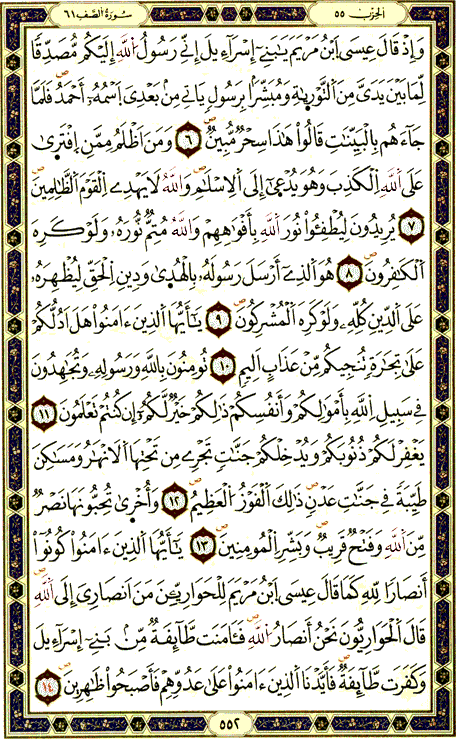 الحزب ٥٥
سورة الصف ٦١
وَإِذْ قَالَ عِيسَى اَبْنُ مَرْيَمَ يَٰبَنِےٓ إِسْرَآءِيلَ إِنِّے رَسُولُ اُللَّهِ إِلَيْكُم مُّصَدِّقاً
لِّمَا بَيْنَ يَدَيَّ مِنَ اَلتَّوْرَىٰةِ وَمُبَشِّراً بِرَسُولٍ يَاتِے مِنۢ بَعْدِيَ اَسْمُهُۥٓ أَحْمَدُ فَلَمَّا
جَآءَهُم بِالْبَيِّنَٰتِ قَالُواْ هَٰذَا سِحْرٌ مُّبِينٌ ٦ وَمَنَ اَظْلَمُ مِمَّنِ اِفْتَرَىٰ
عَلَى اَللَّهِ اِلْكَذِبَ وَهُوَ يُدْعَىٰٓ إِلَى اَلِاسْلَٰمِ وَاللَّهُ لَا يَهْدِے اِلْقَوْمَ اَلظَّٰلِمِينَ
٧ يُرِيدُونَ لِيُطْفِـُٔواْ نُورَ اَللَّهِ بِأَفْوَٰهِهِمْ وَاللَّهُ مُتِمٌّ نُورَهُۥ وَلَوْ كَرِهَ
اَلْكَٰفِرُونَ ٨ هُوَ اَلذِےٓ أَرْسَلَ رَسُولَهُۥ بِالْهُدَىٰ وَدِينِ اِلْحَقِّ لِيُظْهِرَهُۥ
عَلَى اَلدِّينِ كُلِّهِۦ وَلَوْ كَرِهَ اَلْمُشْرِكُونَ ٩ يَٰٓأَيُّهَا اَلذِينَ ءَامَنُواْ هَلَ اَدُلُّكُمْ
عَلَىٰ تِجَٰرَةٍ تُنجِيكُم مِّنْ عَذَابٍ اَلِيمٍ ١٠ تُومِنُونَ بِاللَّهِ وَرَسُولِهِۦ وَتُجَٰهِدُونَ
فِے سَبِيلِ اِللَّهِ بِأَمْوَٰلِكُمْ وَأَنفُسِكُمْ ذَٰلِكُمْ خَيْرٌ لَّكُمُۥٓ إِن كُنتُمْ تَعْلَمُونَ ١١
يَغْفِرْ لَكُمْ ذُنُوبَكُمْ وَيُدْخِلْكُمْ جَنَّٰتٍ تَجْرِے مِن تَحْتِهَا اَلَانْهَٰرُ وَمَسَٰكِنَ
طَيِّبَةً فِے جَنَّٰتِ عَدْنٍ ذَٰلِكَ اَلْفَوْزُ اُلْعَظِيمُ ١٢ وَأُخْرَىٰ تُحِبُّونَهَا نَصْرٌ
مِّنَ اَللَّهِ وَفَتْحٌ قَرِيبٌ وَبَشِّرِ اِلْمُومِنِينَ ١٣ يَٰٓأَيُّهَا اَلذِينَ ءَامَنُواْ كُونُوٓاْ
أَنصَاراً لِلهِ كَمَا قَالَ عِيسَى اَبْنُ مَرْيَمَ لِلْحَوَارِيِّـۧنَ مَنَ اَنصَارِيَ إِلَى اَللَّهِ
قَالَ اَلْحَوَارِيُّونَ نَحْنُ أَنصَارُ اُللَّهِ فَـَٔامَنَت طَّآئِفَةٌ مِّنۢ بَنِےٓ إِسْرَآءِيلَ
وَكَفَرَت طَّآئِفَةٌ فَأَيَّدْنَا اَلذِينَ ءَامَنُواْ عَلَىٰ عَدُوِّهِمْ فَأَصْبَحُواْ ظَٰهِرِينَ ١٤
٥٥٢